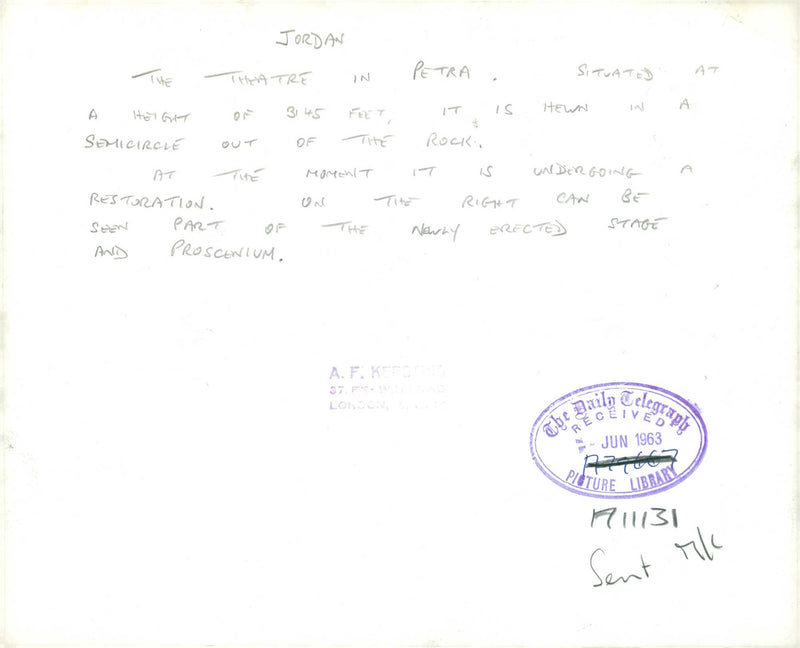 JORDAN
THE THEATRE IN PETRA. SITUATED AT
A HEIGHT OF 3145 FEET, IT IS HEWN IN A
SEMICIRCLE OUT OF THE ROCK.
AT THE MOMENT IT IS UNDERGOING A
RESTORATION. ON THE RIGHT CAN BE
SEEN PART OF THE NEWLY ERECTED STAGE
AND PROSCENIUM.
A. F.
37,
LONDON,
The Daily Telegraph
RECEIVED
JUN 1963
PICTURE LIBRARY
A11131
Sent